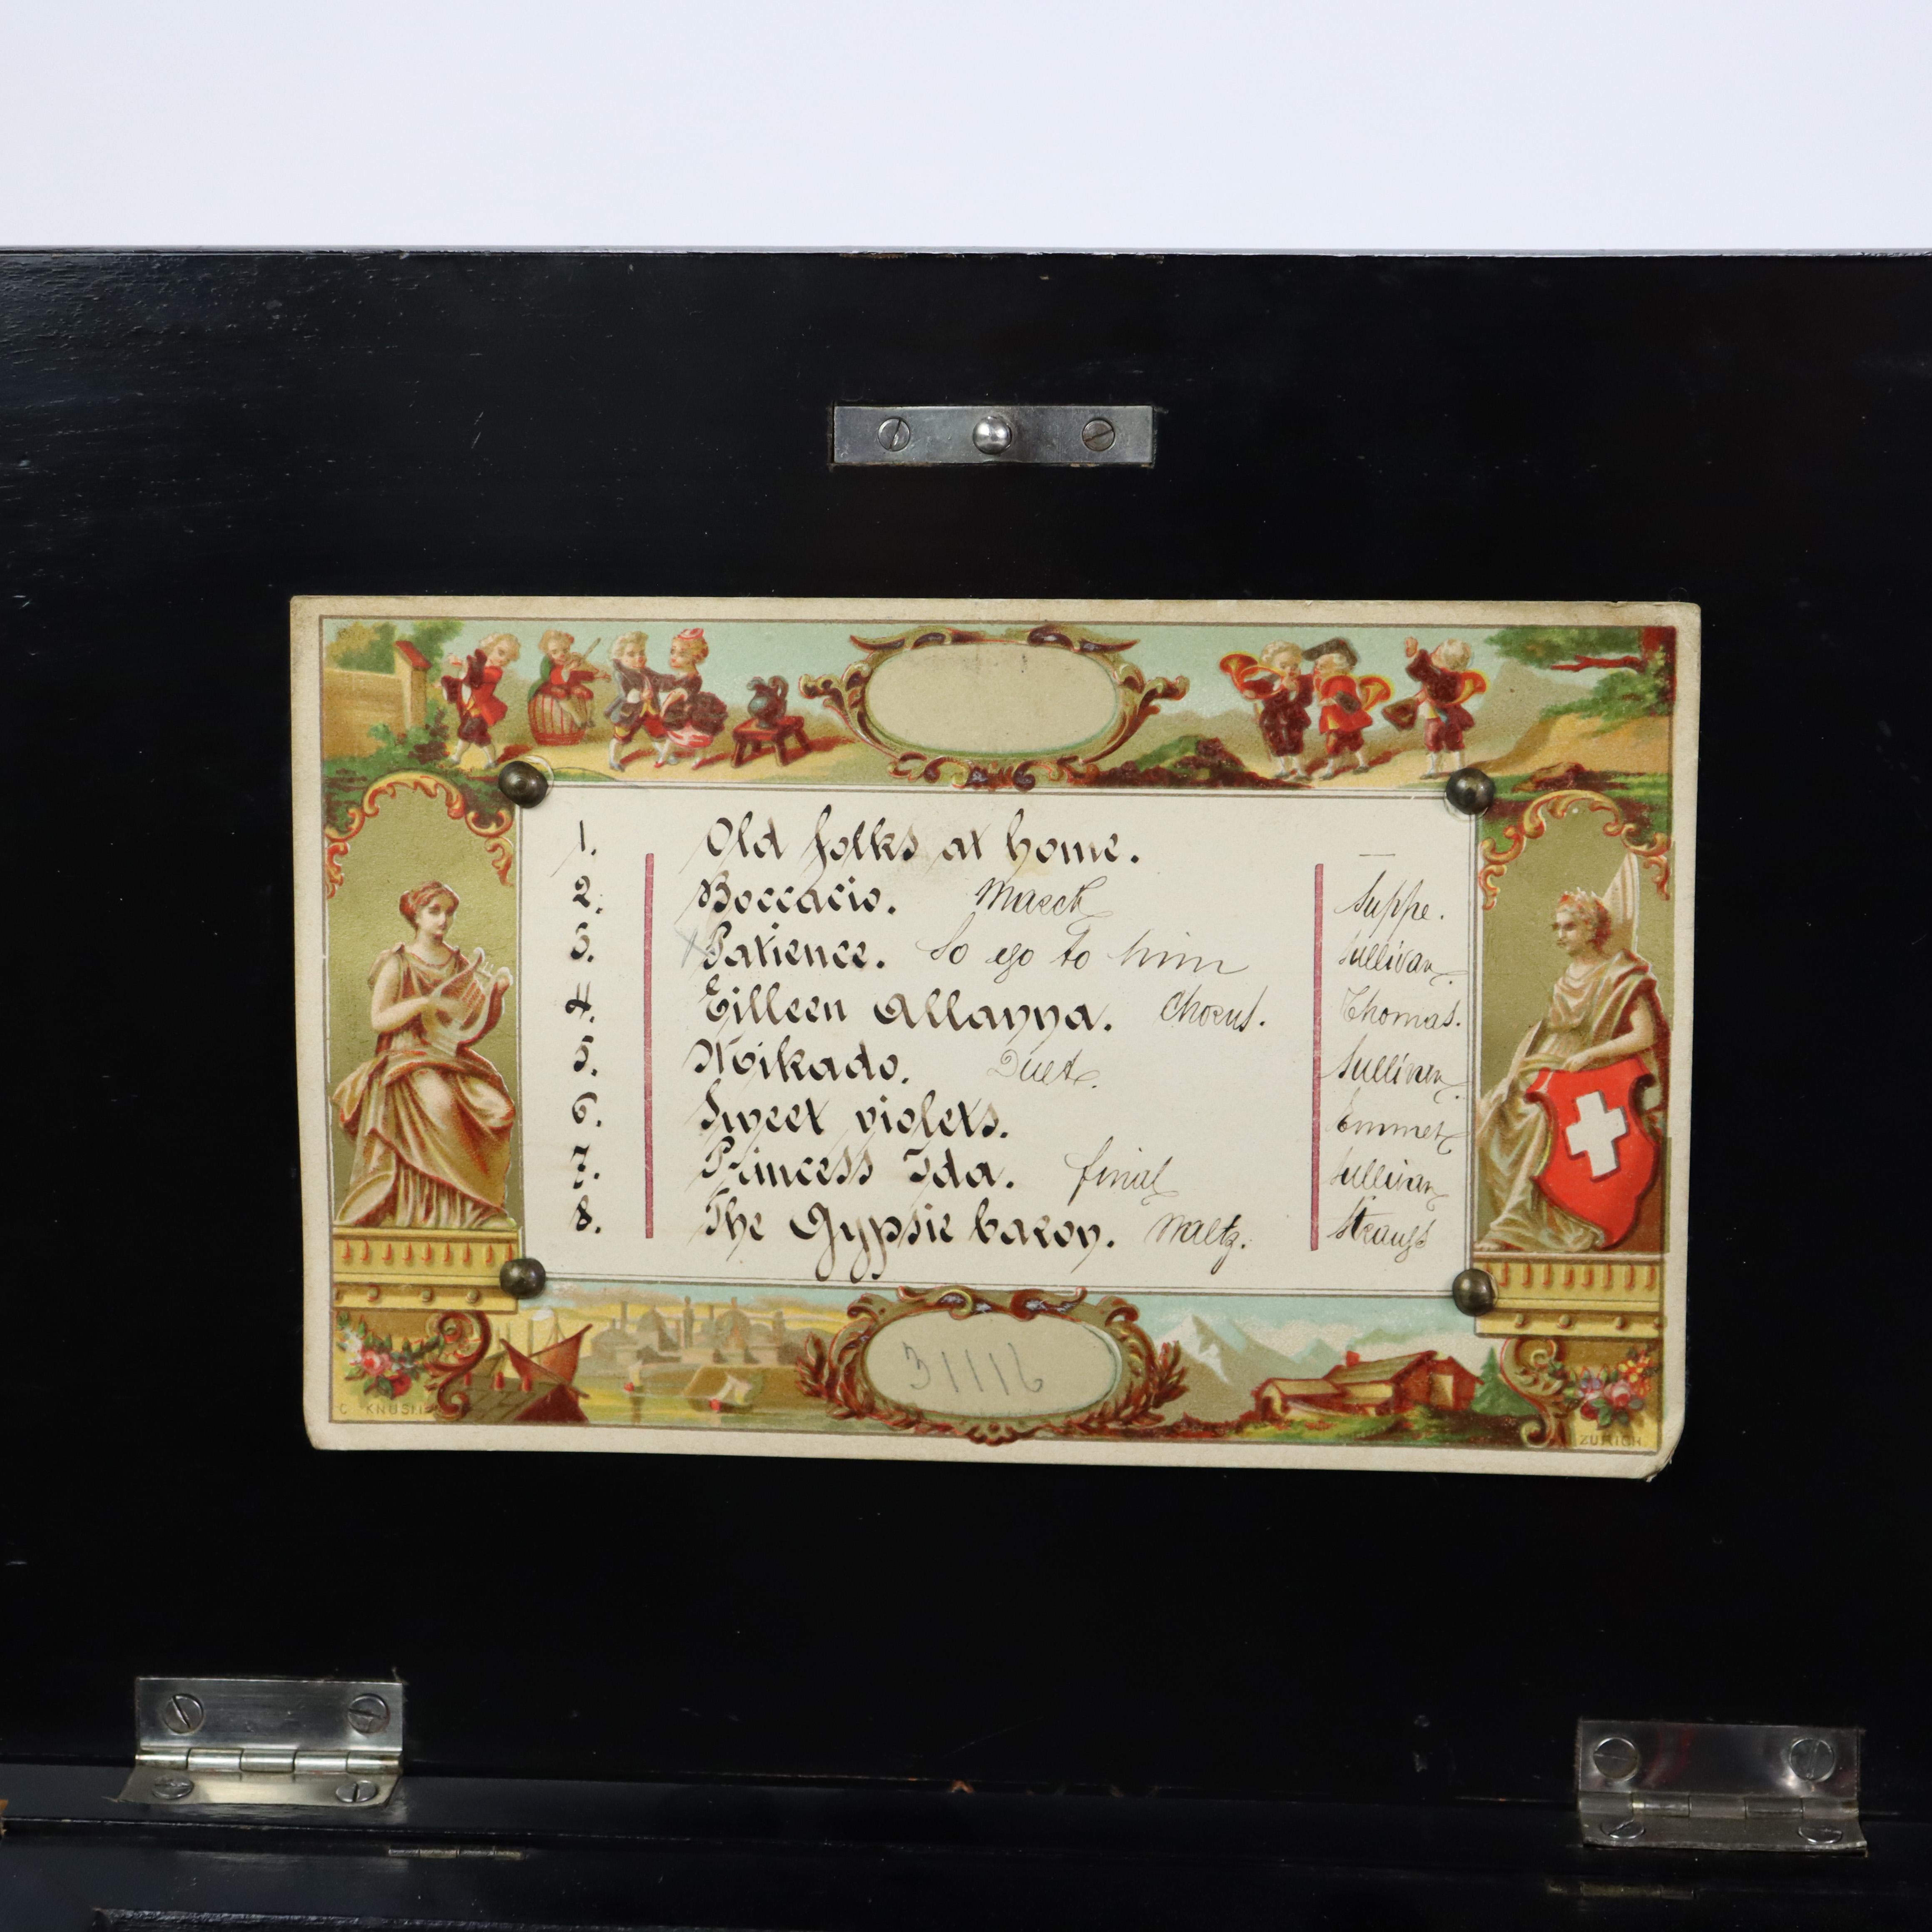 1. Old folks at home. —
2. Boccacio. March Suppe.
3. Patience. So go to him Sullivan.
4. Eilleen Allanna. Chorus. Thomas.
5. Mikado. Duet. Sullivan.
6. Sweet violets. Emmet
7. Princess Ida. final Sullivan
8. The Gypsie baron. Waltz. Strauss
31116
C
ZURICH.